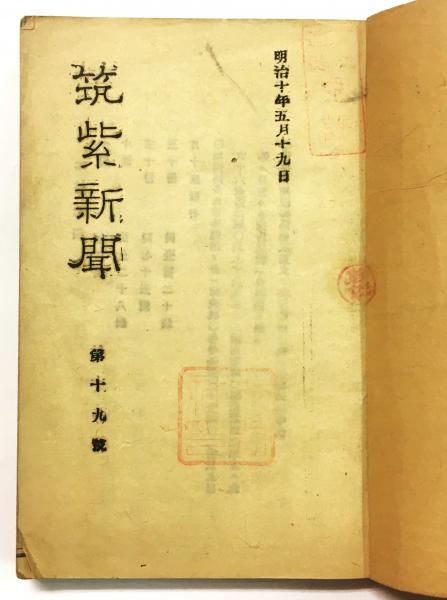 明治十年五月十九日
筑紫新聞
第十九號